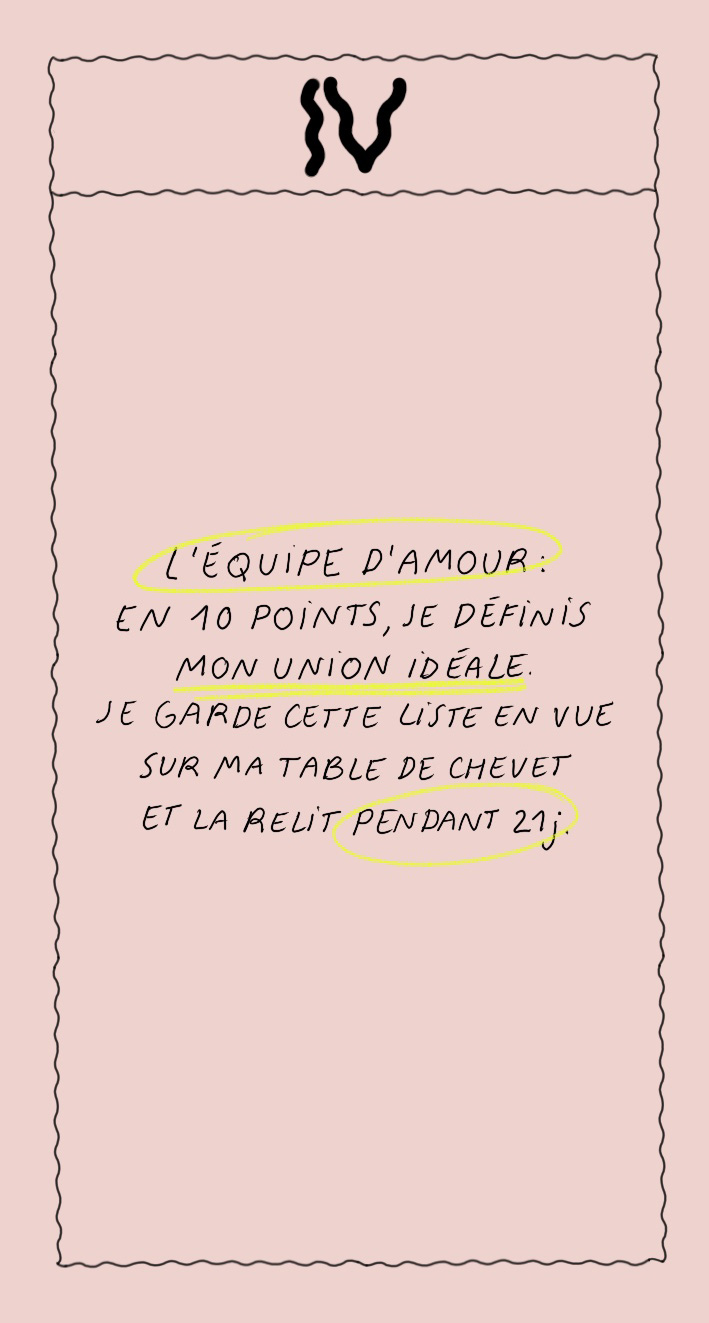 IV
L'ÉQUIPE D'AMOUR:
EN 10 POINTS, JE DÉFINIS
MON UNION IDÉALE.
JE GARDE CETTE LISTE EN VUE
SUR MA TABLE DE CHEVET
ET LA RELIT PENDANT 21j.